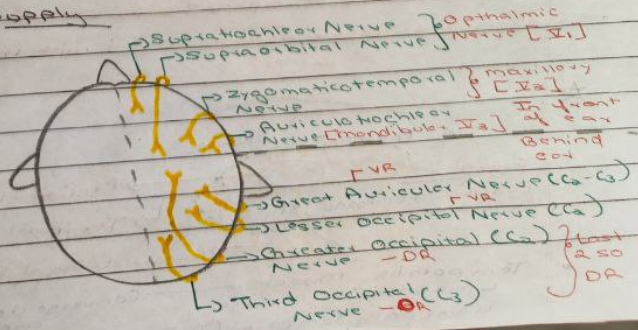 supply
Supratrochlear Nerve } Opthalmic
Supraorbital Nerve Nerve [V1]
Zygomaticotemporal } maxillary
Nerve [V2]
Auriculotrochlear In front
Nerve [mandibular V3] of ear
Behind
ear
VR
Great Auricular Nerve (C2-C3)
VR
Lesser Occipital Nerve (C2)
Greater Occipital (C2) } Last
Nerve - DR 2 so
DR
Third Occipital (C3)
Nerve - DR